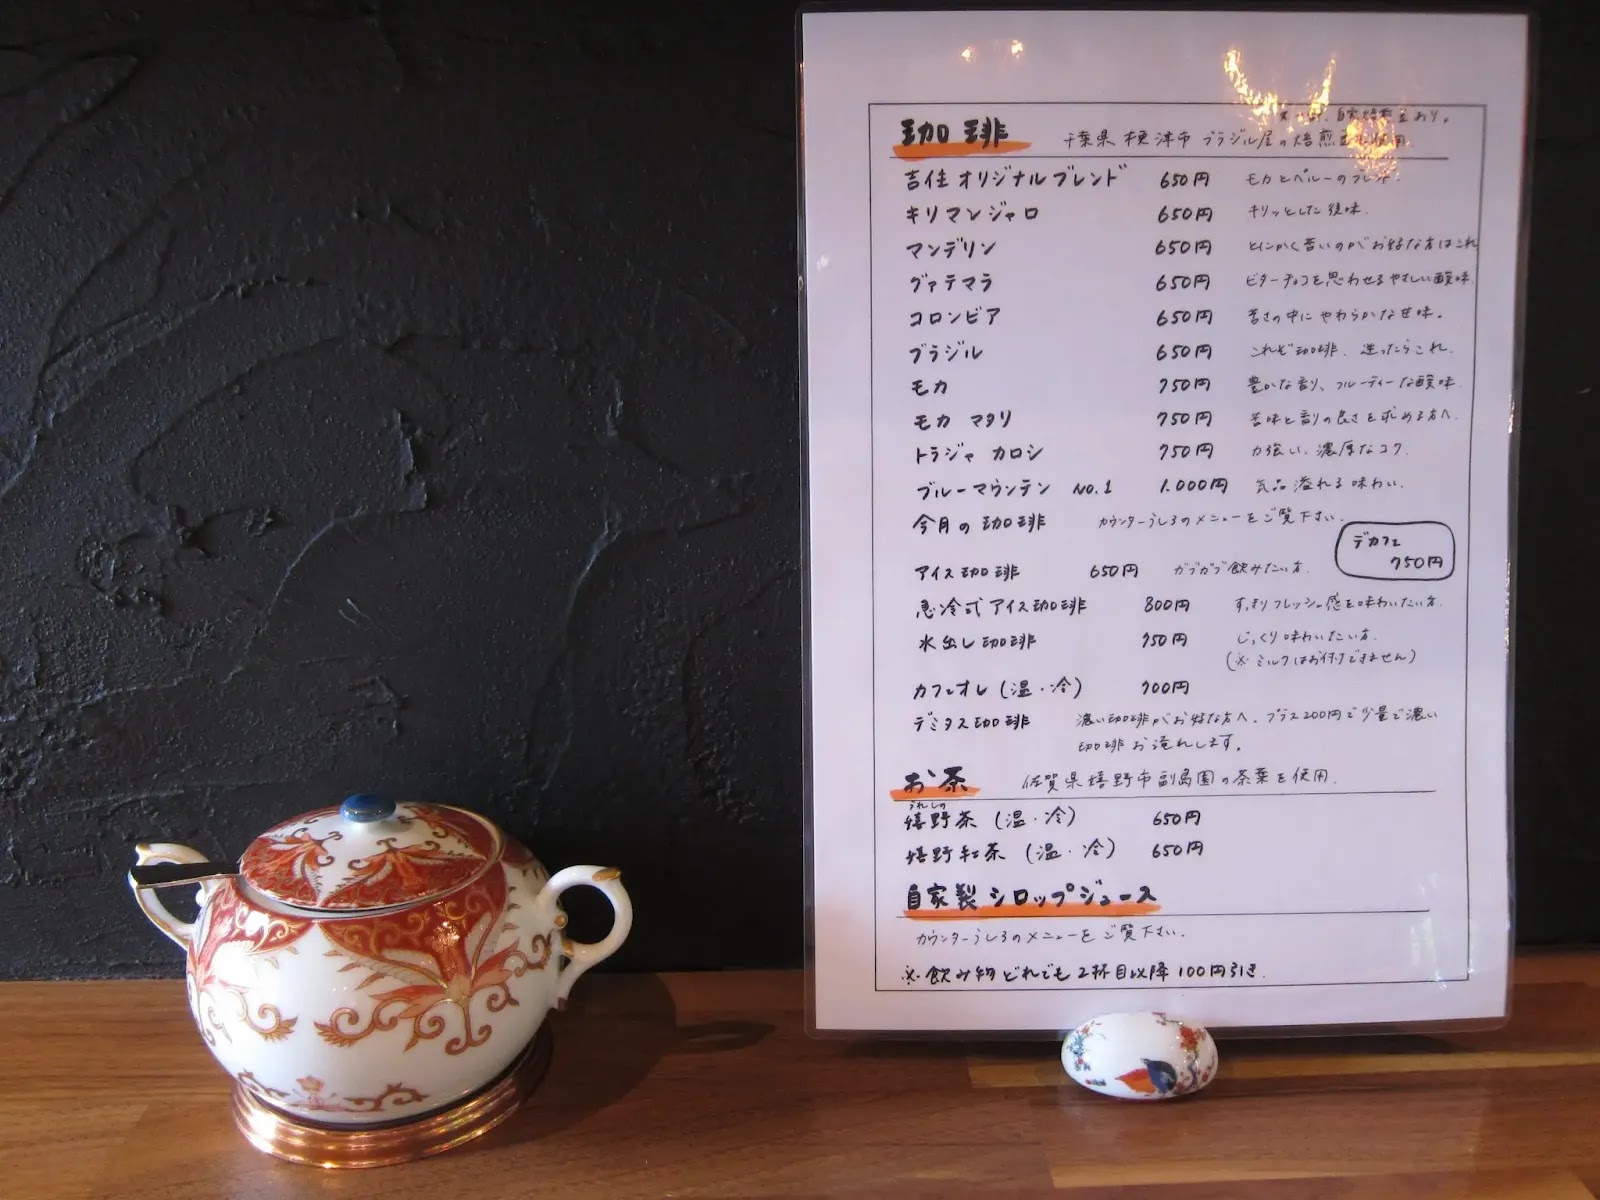 珈琲
自家焙煎豆あり。
千葉県 木更津市 ブラジル屋の焙煎豆を使用.
吉住オリジナルブレンド 650円 モカとペルーのブレンド.
キリマンジャロ 650円 キリッとした後味.
マンデリン 650円 とにかく苦いのがお好な方はこれ
グァテマラ 650円 ビターチョコを思わせるやさしい酸味.
コロンビア 650円 苦さの中にやわらかな甘味。
ブラジル 650円 これぞ珈琲、迷ったらこれ.
モカ 750円 豊かな香り、フルーティーな酸味.
モカ マタリ 750円 苦味と香りの良さを求める方へ.
トラジャ カロシ 750円 力強い、濃厚なコク.
ブルーマウンテン No.1 1.000円 気品溢れる味わい.
今月の珈琲 カウンターうしろのメニューをご覧下さい.
デカフェ
750円
アイス珈琲 650円 ガブガブ飲みたい方.
急冷式アイス珈琲 800円 すっきりフレッシュ感を味わいたい方.
水出し珈琲 750円 じっくり味わいたい方.
(※ミルクはお付けできません)
カフェオレ (温・冷) 700円
デミタス珈琲 濃い珈琲がお好な方へ。プラス200円で少量で濃い
珈琲お淹れします。
お茶 佐賀県嬉野市副島園の茶葉を使用.
うれしの
嬉野茶 (温・冷) 650円
嬉野紅茶 (温・冷) 650円
自家製シロップジュース
カウンターうしろのメニューをご覧下さい.
※飲み物どれでも2杯目以降100円引き.